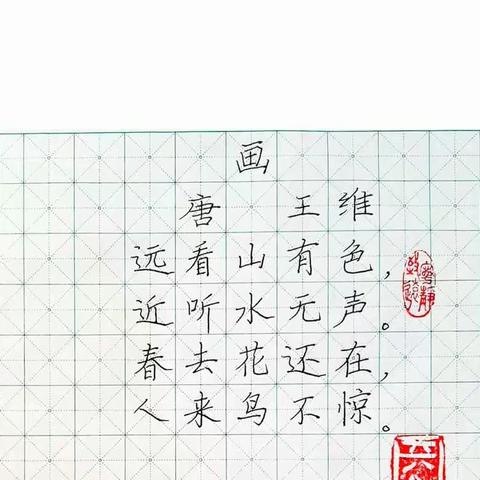 画
唐 王维
远看山有色，
近听水无声。
春去花还在，
人来鸟不惊。
宁静
致远